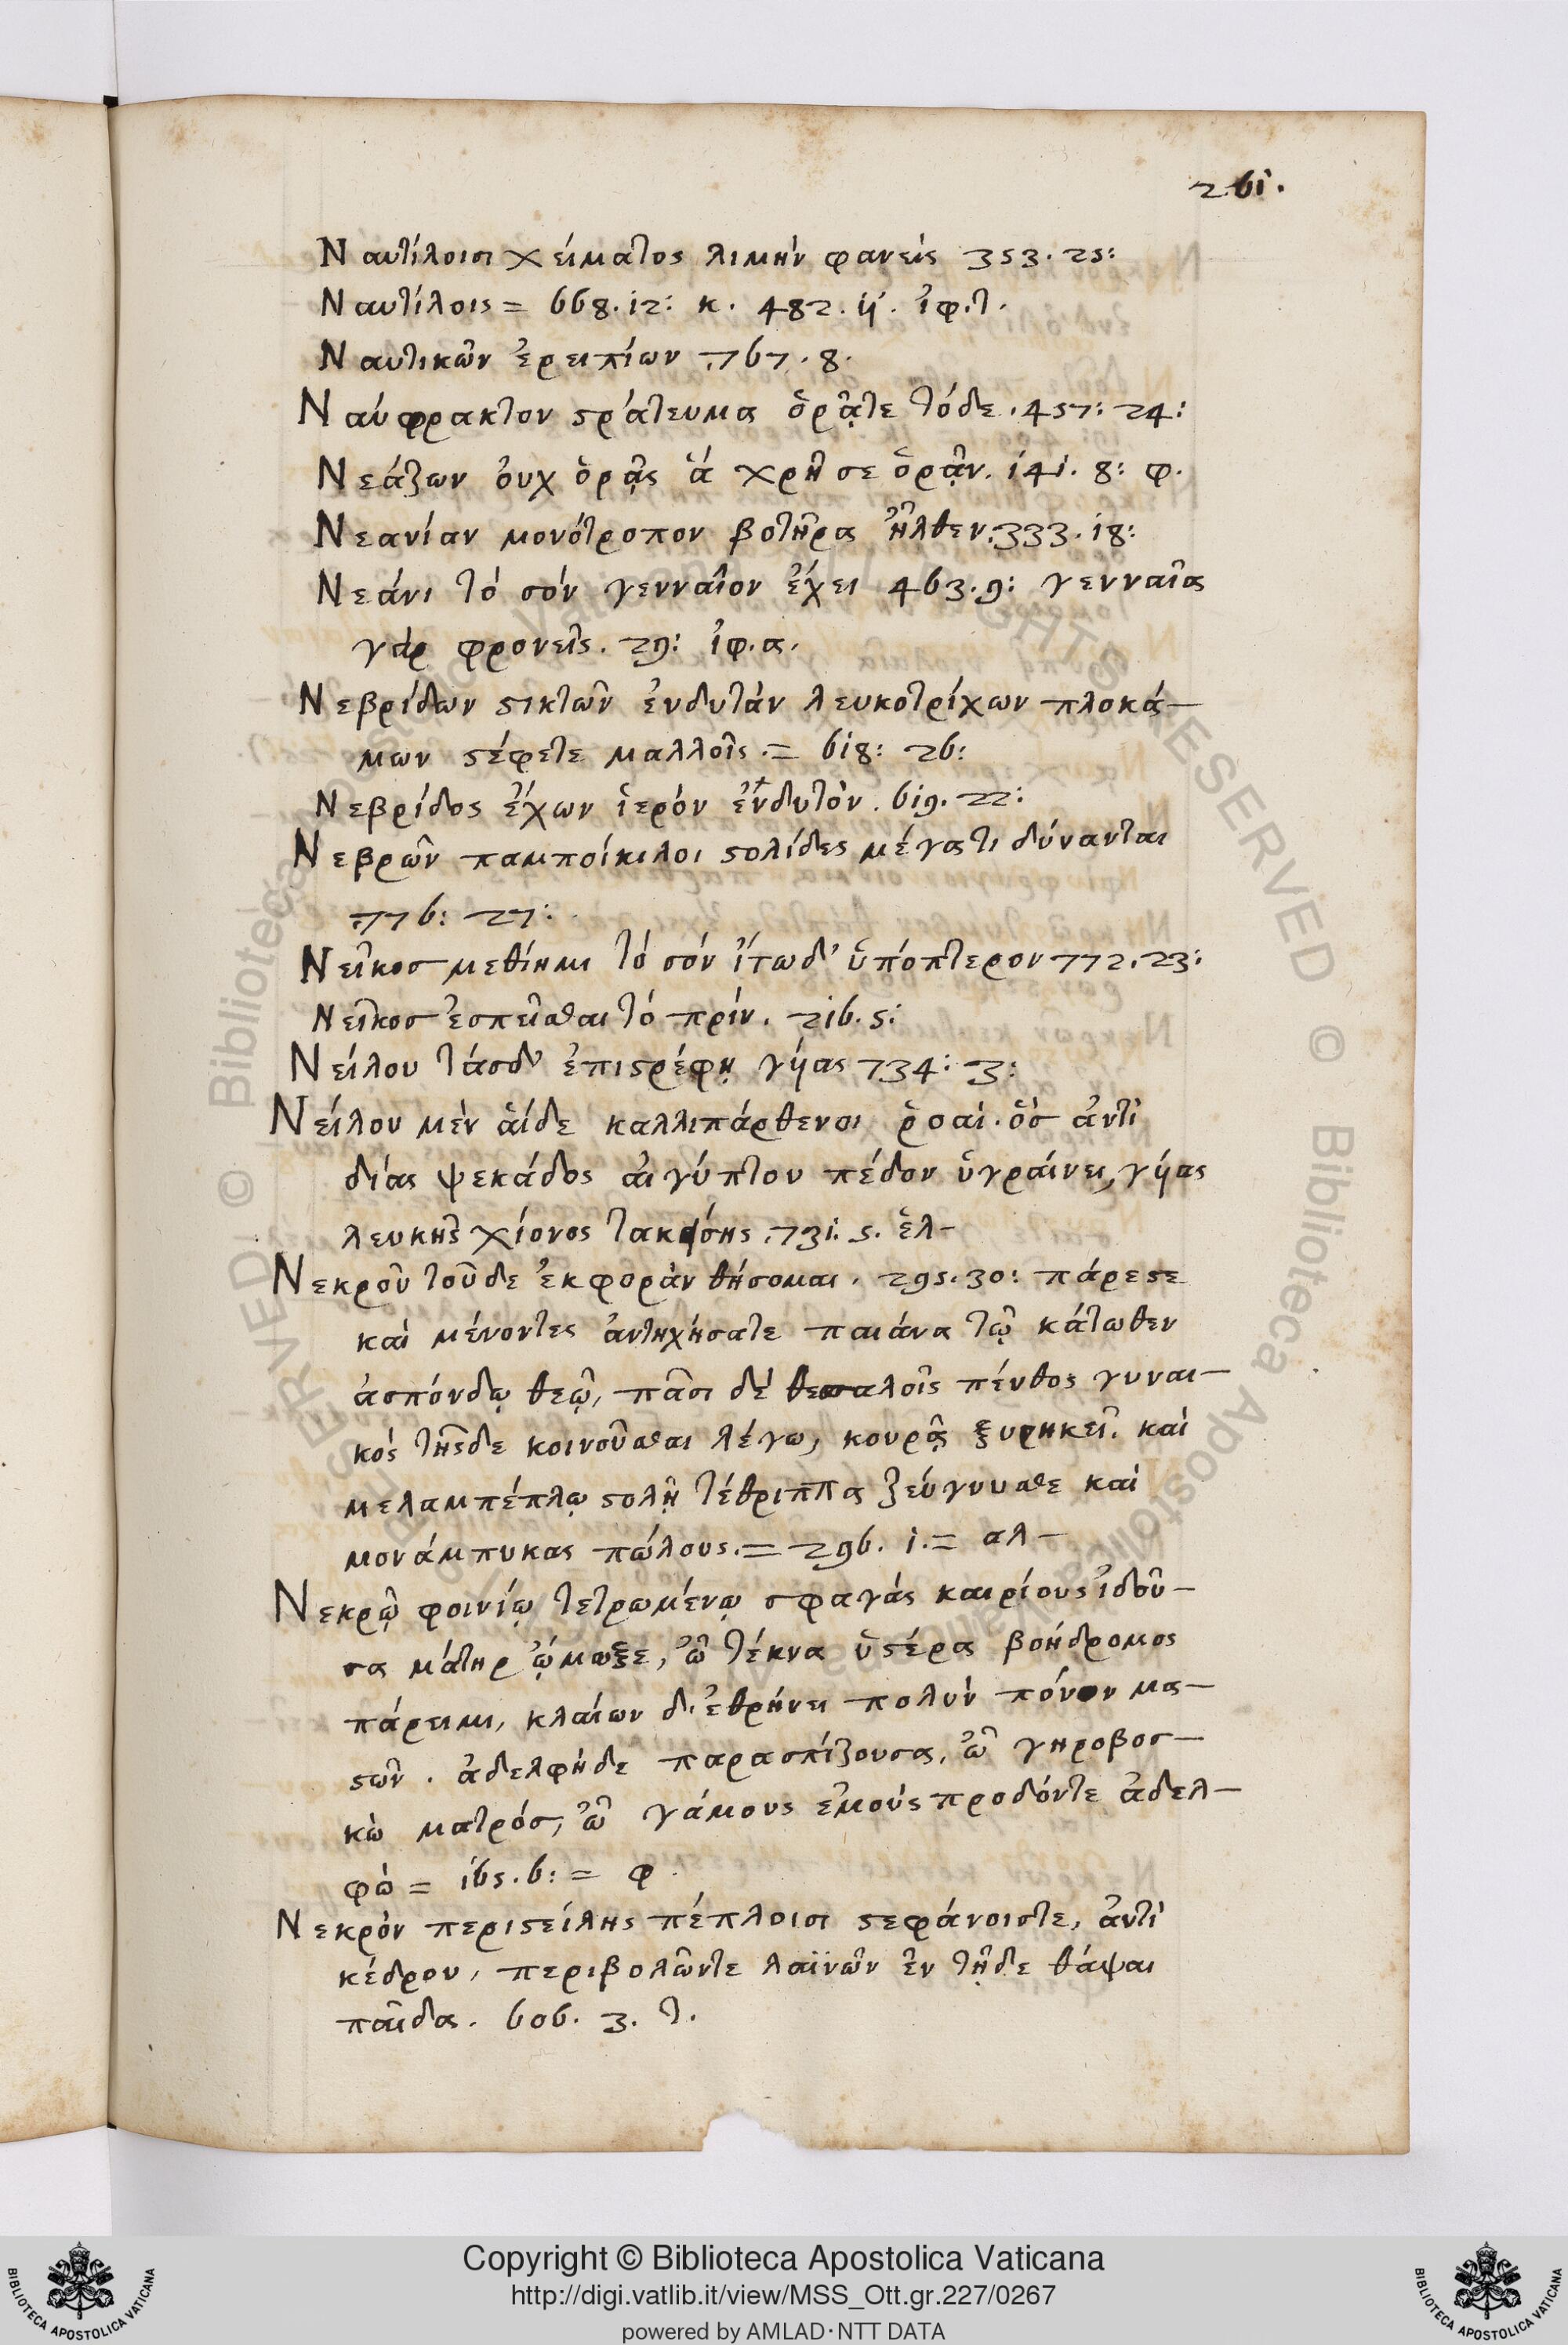 261.
Ναυτίλοισι χείματος λιμὴν φανεὶς 353. 25:
Ναυτίλοις = 668. 12: κ. 482. 11. ἰφ. τ.
Ναυτικῶν ἐρειπίων. 767. 8.
Ναύφρακτον ϛράτευμα ὁρᾷτε τόδε. 457: 24:
Νεάζων οὐχ ὁρᾷς ἃ χρή σε ὁρᾷν. 141. 8: φ.
Νεανίαν μονότροπον βοτῆρα ἦλθεν. 333. 18:
Νεάνι τὸ σὸν γενναῖον ἔχει 463. 9: γενναῖα
γὰρ φρονεῖς. 29: ἰφ. α.
Νεβρίδων ϛικτῶν ἐνδυτὰν λευκοτρίχων πλοκά-
μων ϛέφετε μαλλοῖς. = 618: 26:
Νεβρίδος ἔχων ἱερὸν ἐνδυτὸν. 619. 22:
Νεβρῶν παμποίκιλοι ϛολίδες μέγα τι δύνανται
776: 27:
Νεῖκος μεθίημι τὸ σὸν ἴτω δ' ὑπόπτερον 772. 23:
Νεῖκος ἐσπεῖσθαι τὸ πρίν. 216. 5:
Νείλου τάσδ' ἐπιϛρέφῃ γύας 734: 3:
Νείλου μὲν αἵδε καλλιπάρθενοι ῥοαὶ. ὃς ἀντὶ
δίας ψεκάδος αἰγύπτου πέδον ὑγραίνει, γύας
λευκῆς χιόνος τακείσης. 731. 5. ἑλ-
Νεκροῦ τοῦδε ἐκφορὰν θήσομαι. 295. 30: πάρεϛε
καὶ μένοντες ἀντηχήσατε παιάνα τῷ κάτωθεν
ἀσπόνδῳ θεῷ, πᾶσι δὲ θεσαλοῖς πένθος γυναι-
κὸς τῆσδε κοινοῦσθαι λέγω, κουρᾷ ξυρηκεῖ. καὶ
μελαμπέπλῳ ϛολῇ τέθριππα ζεύγνυσθε καὶ
μονάμπυκας πώλους. = 296. 1. = αλ-
Νεκρῷ φοινίῳ τετρωμένῳ σφαγὰς καιρίους ἰδοῦ-
σα μάτηρ ᾤμωξε, ὦ τέκνα ὑϛέρα βοήδρομος
πάρειμι, κλαίων δ' ἐθρήνει πολὺν πόνον μα-
ϛῶν. ἀδελφὴ δε παρασπίζουσα, ὦ γηροβοσ-
κὼ ματρός, ὦ γάμους ἐμοὺς προδόντε ἀδελ-
φὼ = 165. 6: = φ.
Νεκρὸν περιϛείλῃς πέπλοισι ϛεφάνοιστε, ἀντὶ
κέδρου, περιβολῶντε λαΐνων ἐν τῇδε θάψαι
παῖδα. 606. 3. τ.
Copyright © Biblioteca Apostolica Vaticana
http://digi.vatlib.it/view/MSS_Ott.gr.227/0267
powered by AMLAD·NTT DATA